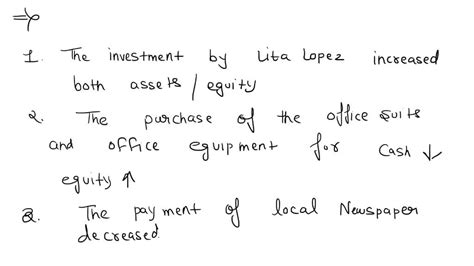 ⇒
1. The investment by Lita Lopez increased
both assets / equity
2. The purchase of the office suits
and office equipment for Cash ↓
equity ↑
3. The payment of local Newspaper
decreased